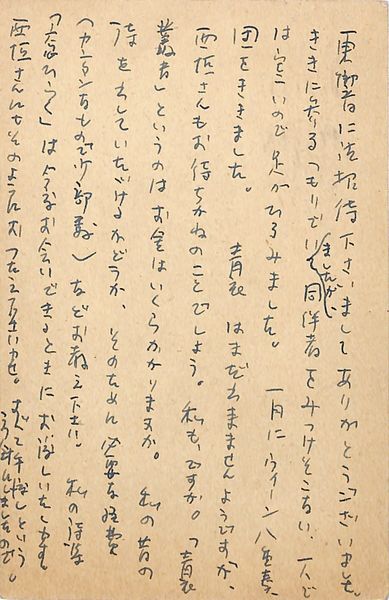 東響に御招待下さいまして ありがとうございました。
ききに参るつもりでいましたが、同伴者をみつけそこない、一人で
は寒いので足がひるみました。 一月にウィーン八重奏
団をききました。 青衣はまだ出ませんようですが、
西垣さんもお待ちかねのことでしょう。私もですが。「青衣
叢書」というのは お金はいくらかかりますか。 私の昔の
詩を出していただけるかどうか、そのために必要な経費
(カンタンなもので少部数)などお教え下さい。 私の詩集
は今度お会いできるときにお渡しいたします。
西垣さんにもそのようにおつたえ下さいませ。 手渡しという
しましたので。